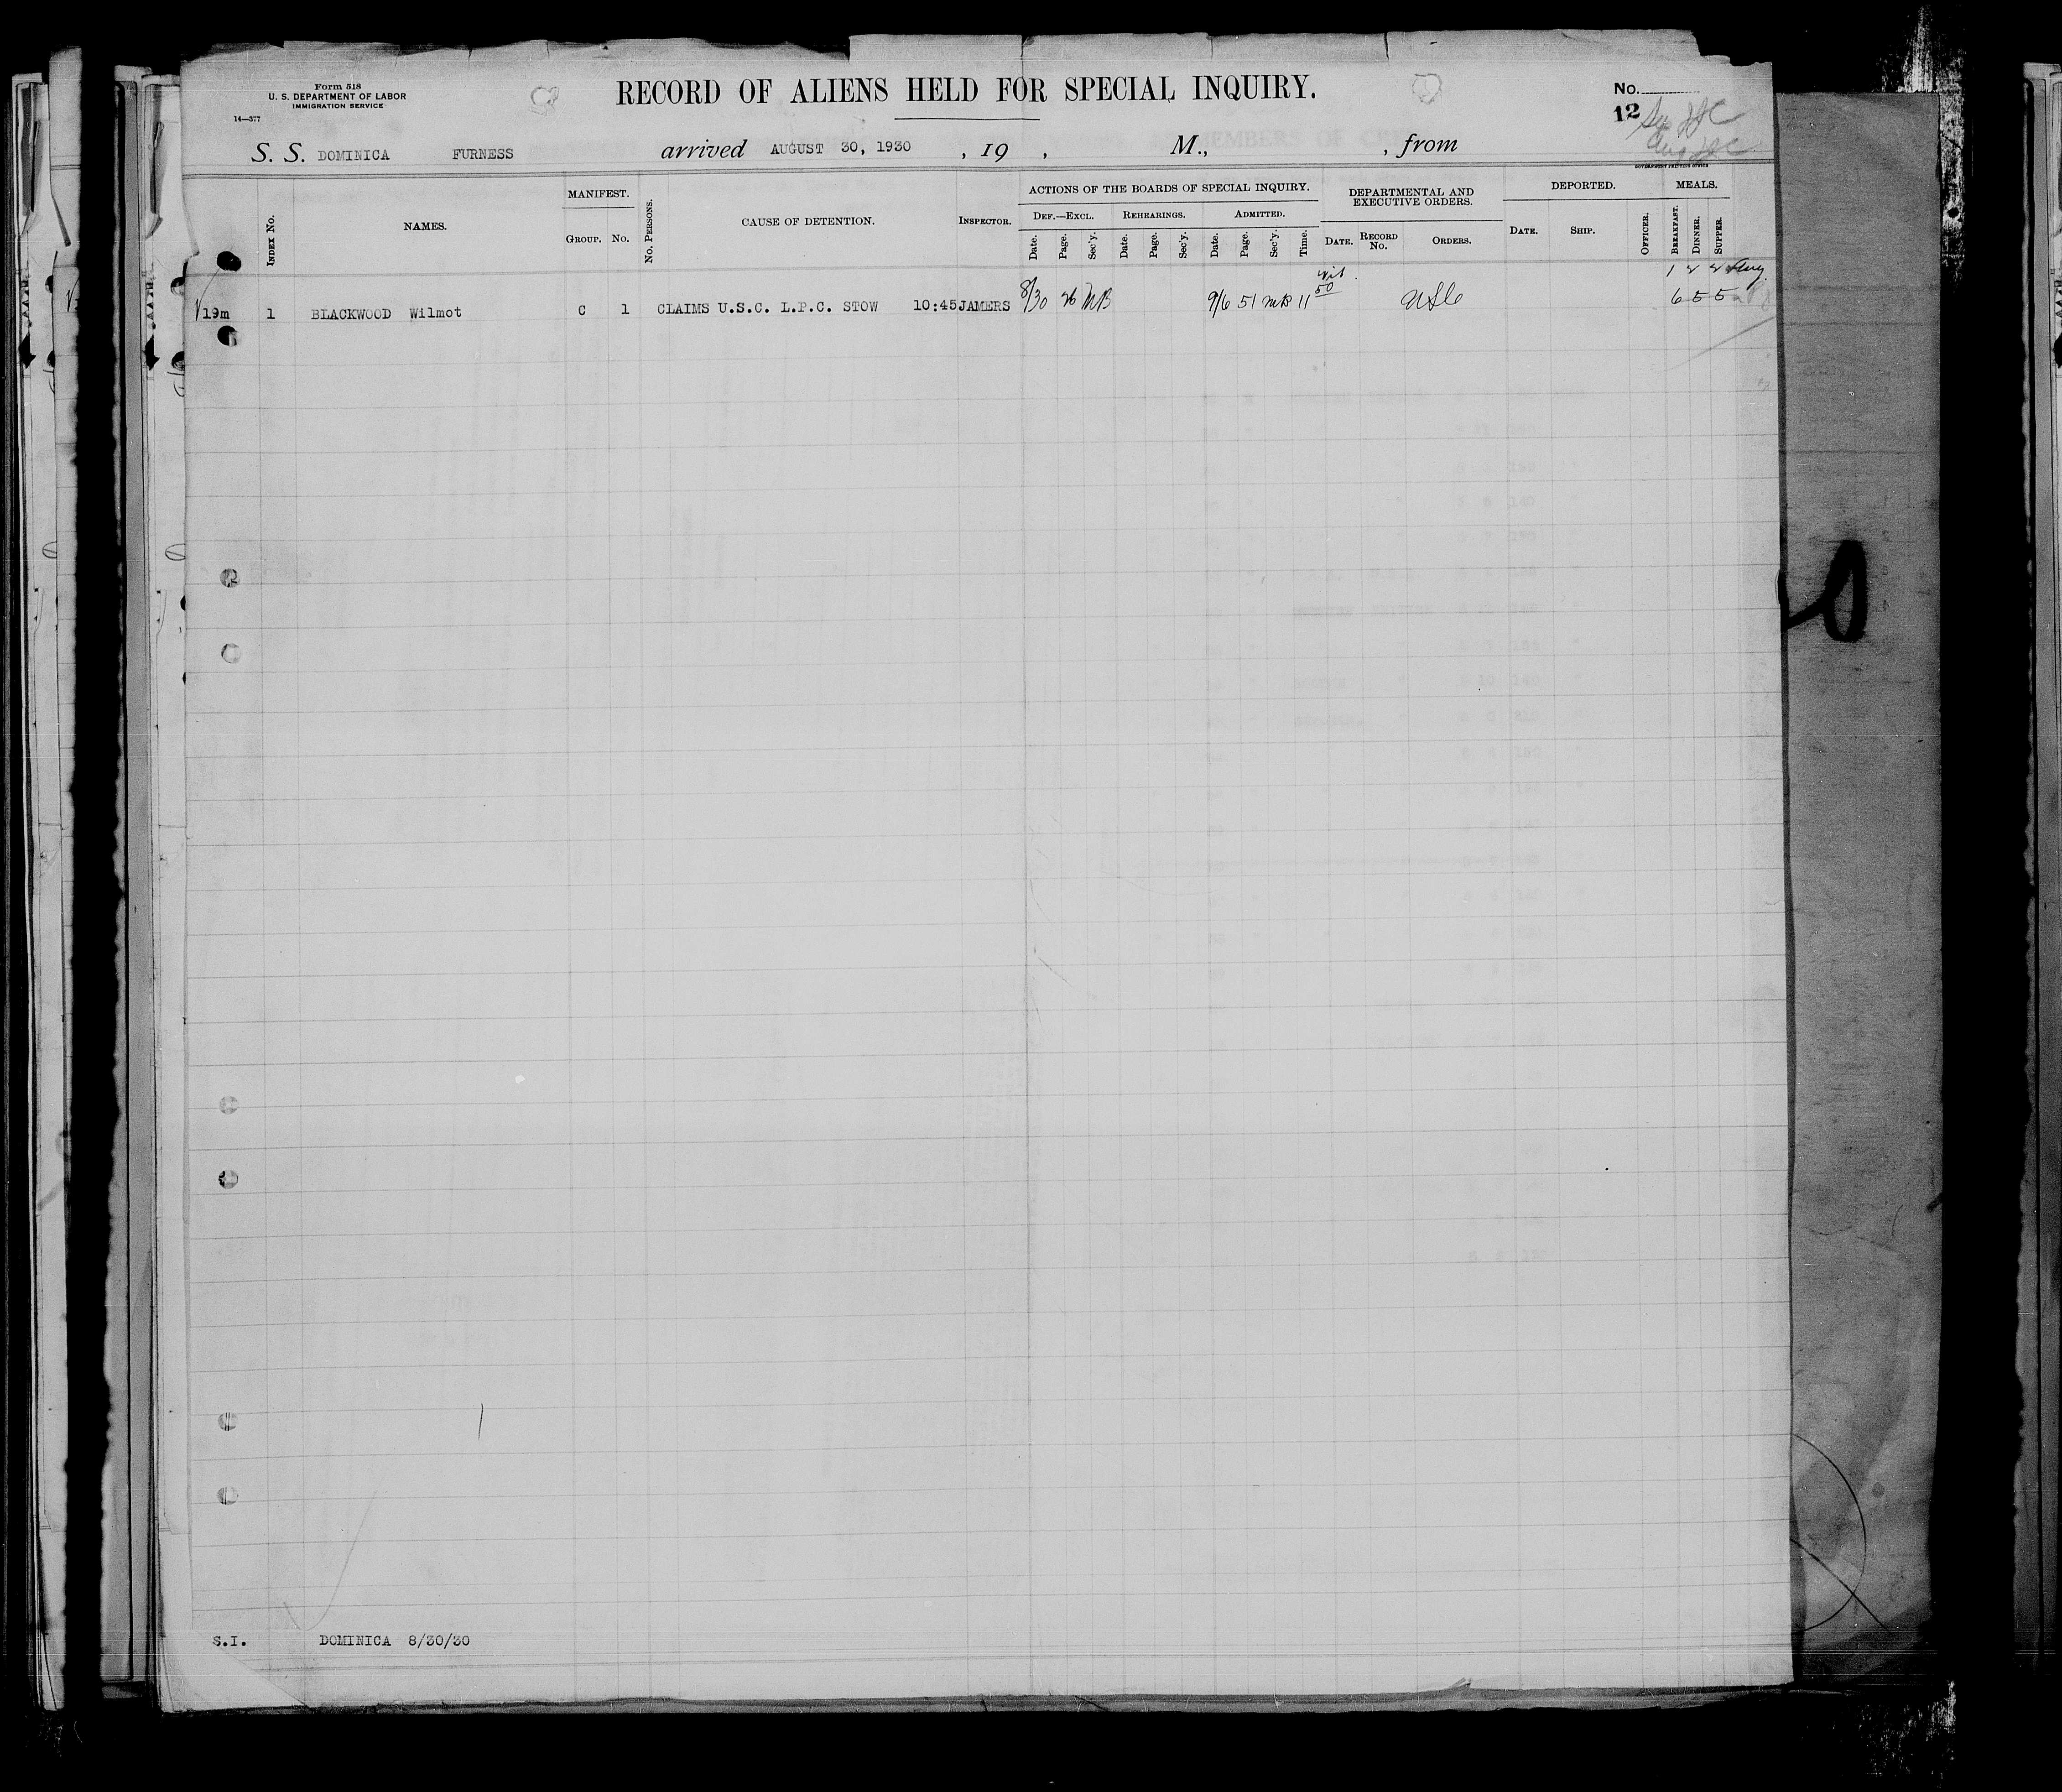 Form 518
U. S. DEPARTMENT OF LABOR
IMMIGRATION SERVICE
14—377
RECORD OF ALIENS HELD FOR SPECIAL INQUIRY.
No.
12
S. S. DOMINICA FURNESS arrived AUGUST 30, 1930 , 19 , M., , from
GOVERNMENT PRINTING OFFICE
INDEX No. NAMES. MANIFEST. GROUP. No. No. PERSONS. CAUSE OF DETENTION. INSPECTOR.
ACTIONS OF THE BOARDS OF SPECIAL INQUIRY.
DEF.—EXCL. Date. Page. Sec'y. REHEARINGS. Date. Page. Sec'y. ADMITTED. Date. Page. Sec'y. Time.
DEPARTMENTAL AND EXECUTIVE ORDERS. DATE. RECORD No. ORDERS.
DEPORTED. DATE. SHIP. OFFICER.
MEALS. BREAKFAST. DINNER. SUPPER.
1 2 2 Aug.
19m 1 BLACKWOOD Wilmot C 1 CLAIMS U.S.C. L.P.C. STOW 10:45 JAMERS 8/30 26 MB 9/6 51 MB 11 50 USC 6 5 5
S.I. DOMINICA 8/30/30